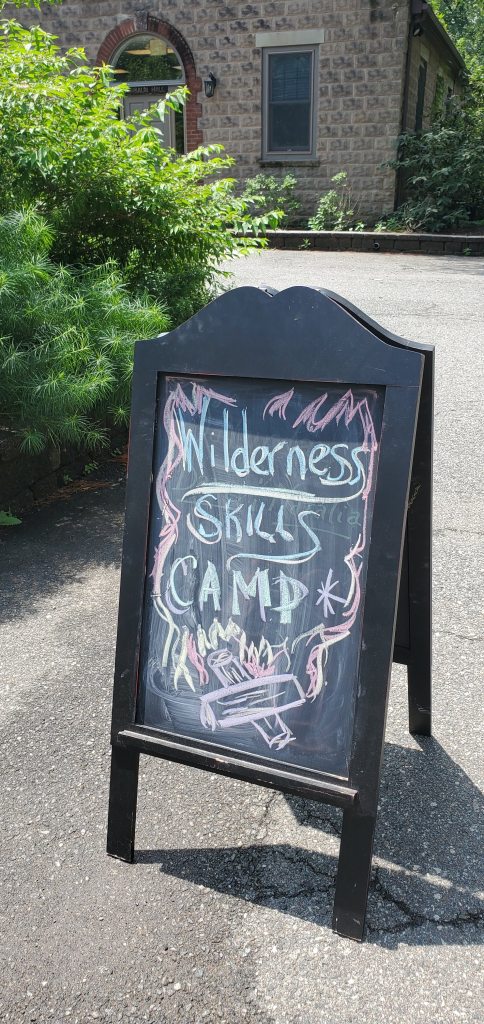 Wilderness
SKILLS
CAMP *